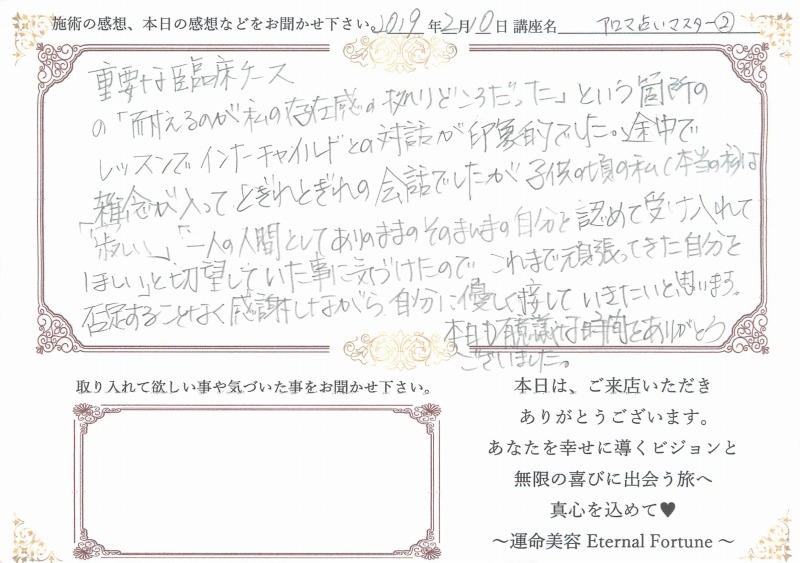 施術の感想、本日の感想などをお聞かせ下さい。2019年2月10日 講座名 アロマ占いマスター②
重要な臨床ケース
の「耐えるのが私の存在感の拠りどころだった」という箇所の
レッスンでインナーチャイルドとの対話が印象的でした。途中で
雑念が入ってとぎれとぎれの会話でしたが子供の頃の私(本当の私)は
「淋しい」、「一人の人間としてありのままのそのまんまの自分を認めて受け入れて
ほしい」と切望していた事に気づけたので、これまで頑張ってきた自分を
否定することなく感謝しながら、自分に優しく接していきたいと思います。
本日も有意義な時間をありがとう
ございました。
取り入れて欲しい事や気づいた事をお聞かせ下さい。
本日は、ご来店いただき
ありがとうございます。
あなたを幸せに導くビジョンと
無限の喜びに出会う旅へ
真心を込めて♥
～運命美容 Eternal Fortune ～